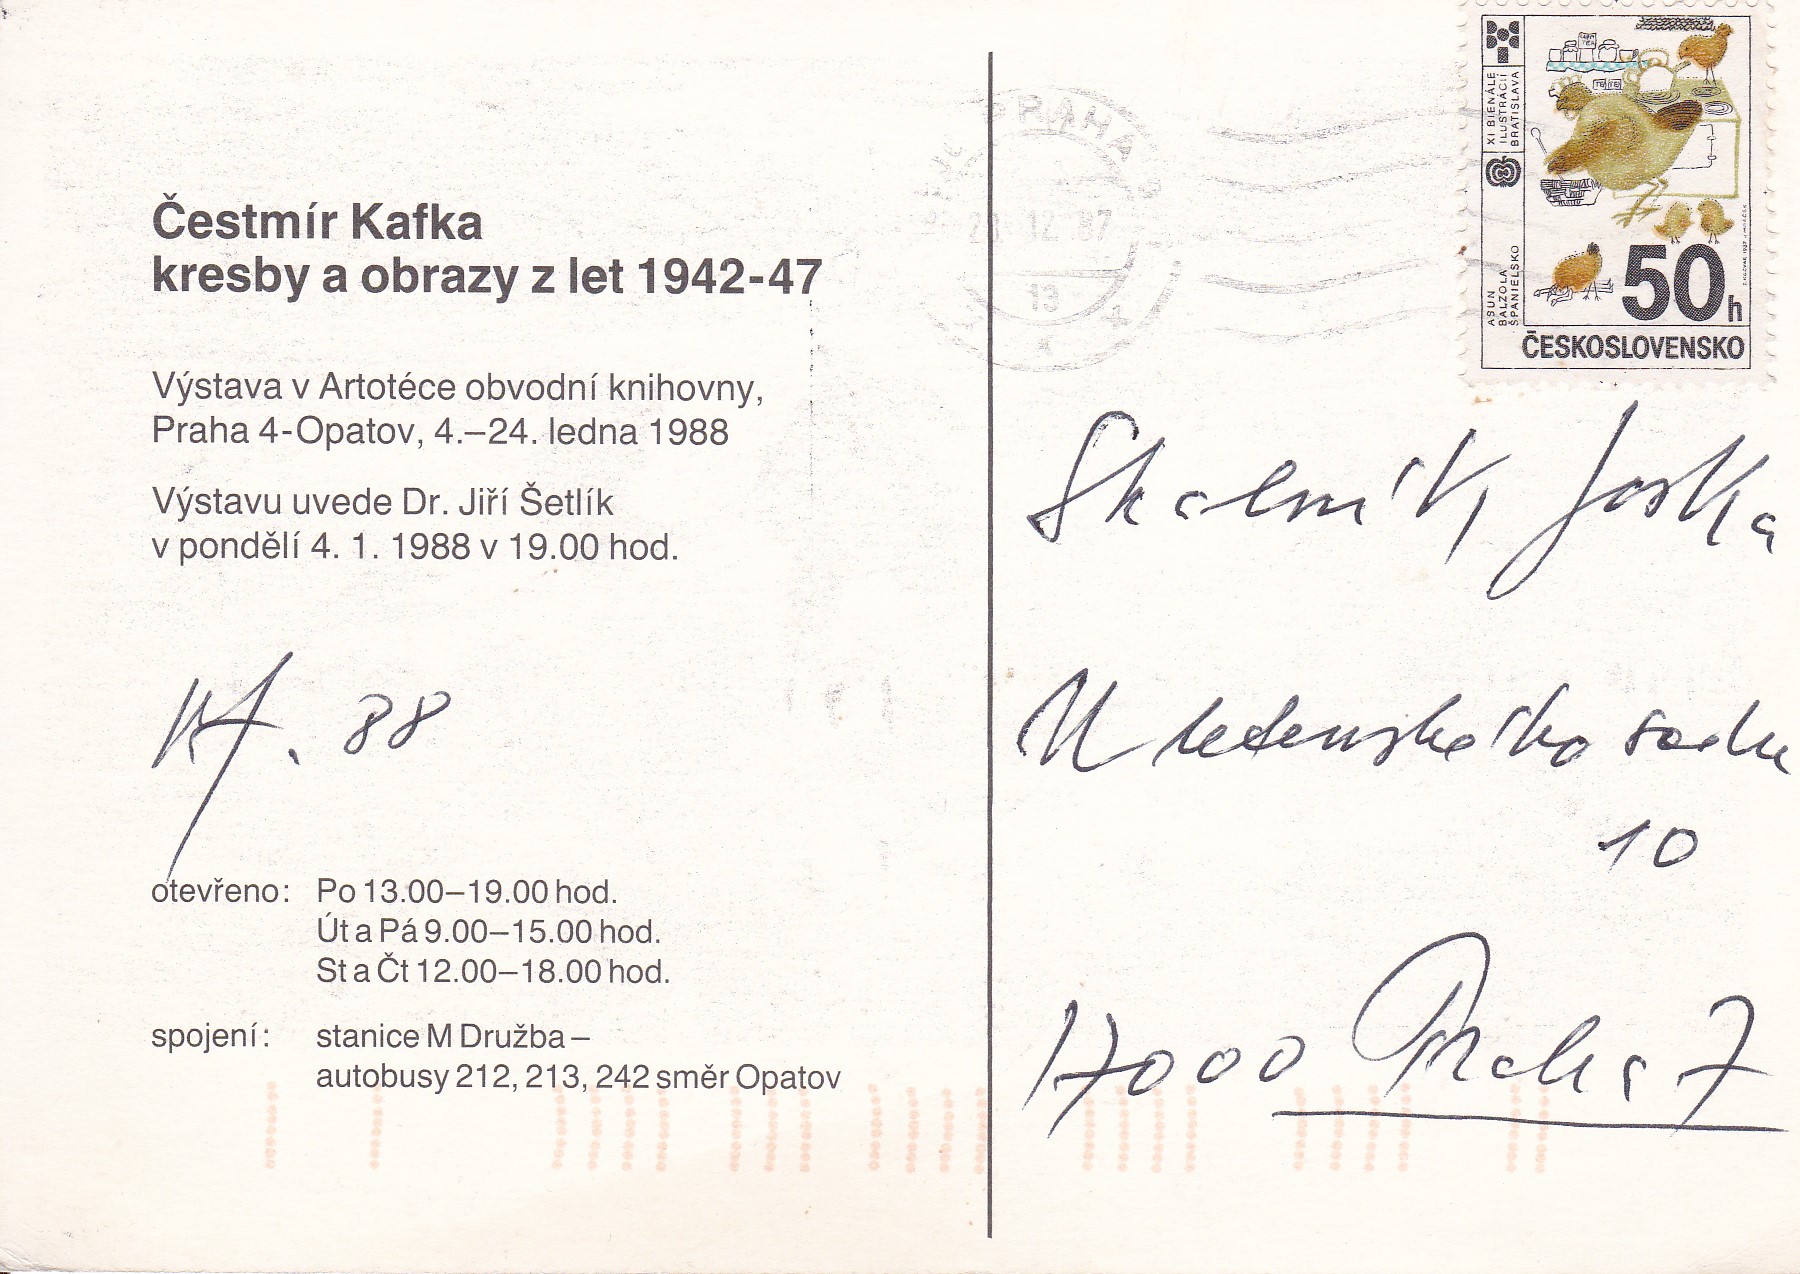 Čestmír Kafka
kresby a obrazy z let 1942-47
Výstava v Artotéce obvodní knihovny,
Praha 4-Opatov, 4.–24. ledna 1988
Výstavu uvede Dr. Jiří Šetlík
v pondělí 4. 1. 1988 v 19.00 hod.
88
otevřeno: Po 13.00–19.00 hod.
Út a Pá 9.00–15.00 hod.
St a Čt 12.00–18.00 hod.
spojení: stanice M Družba –
autobusy 212, 213, 242 směr Opatov
PRAHA
12 87
13
XI BIENÁLE
ILUSTRÁCIÍ
BRATISLAVA
ASUN
BALZOLA
ŠPANIELSKO
50h
ČESKOSLOVENSKO
Skalník Joska
U letenského sadu
10
17000 Praha 7